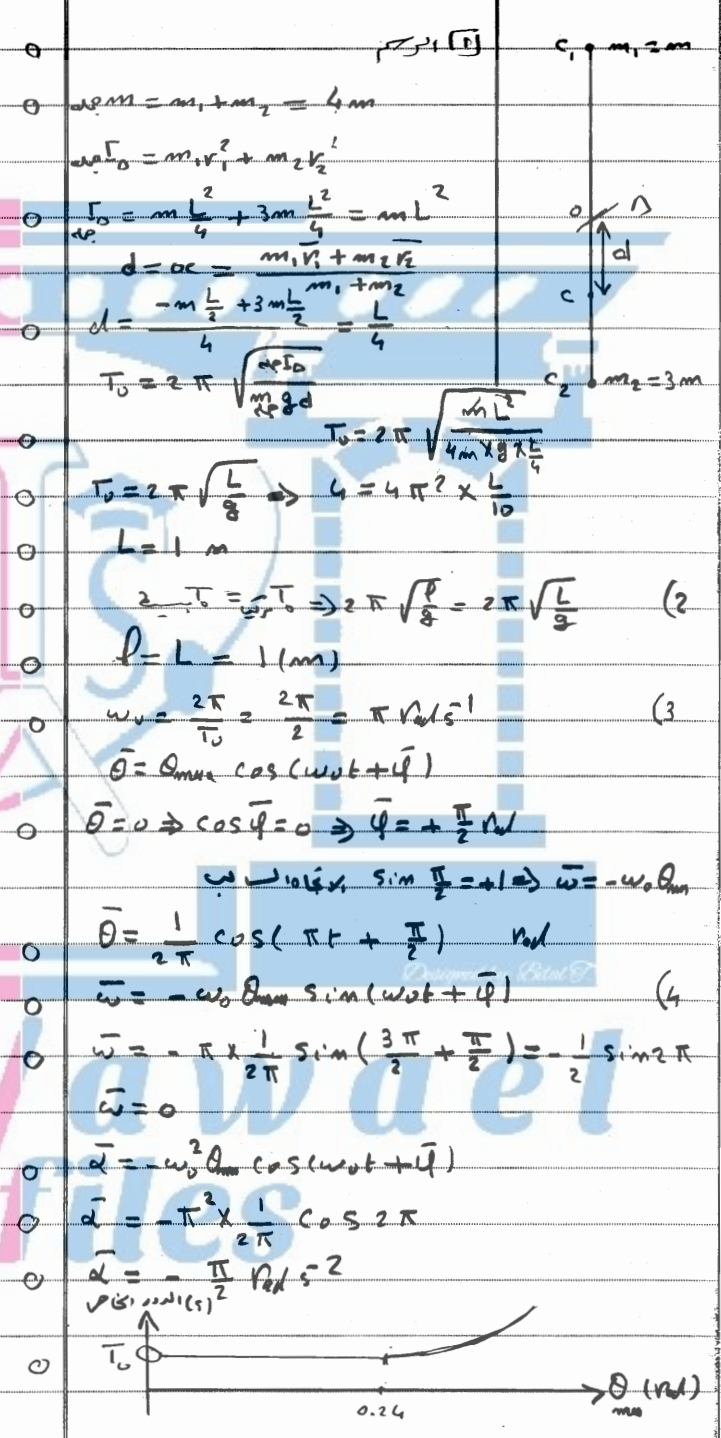 1 الرسم
C₁ m₁ = m
جملة m = m₁ + m₂ = 4m
جملة I_Δ = m₁r₁² + m₂r₂²
جملة I_Δ = m L²/4 + 3m L²/4 = mL²
o Δ
d
d = oc = (m₁r̄₁ + m₂r̄₂)/(m₁ + m₂)
c
d = (-m L/2 + 3m L/2)/4 = L/4
C₂ m₂ = 3m
T₀ = 2π √(جملة I_Δ / جملة m g d)
T₀ = 2π √(mL² / (4m × g × L/4))
T₀ = 2π √(L/g) ⇒ 4 = 4π² × L/10
L = 1 m
2) T₀ = T₀ ⇒ 2π √(ℓ/g) = 2π √(L/g)
ℓ = L = 1 (m)
3) ω₀ = 2π/T₀ = 2π/2 = π rad s⁻¹
θ̄ = θmax cos(ω₀t + φ̄)
θ̄ = 0 ⇒ cos φ̄ = 0 ⇒ φ̄ = + π/2 rad
بالاتجاه السالب sin π/2 = +1 ⇒ ω̄ = -ω₀ θmax
θ̄ = 1/2π cos(πt + π/2) rad
Designed by : Betul T
4) ω̄ = -ω₀ θmax sin(ω₀t + φ̄)
ω̄ = -π × 1/2π sin(3π/2 + π/2) = -1/2 sin 2π
awael
ω̄ = 0
ᾱ = -ω₀² θmax cos(ω₀t + φ̄)
files
ᾱ = -π² × 1/2π cos 2π
ᾱ = - π/2 rad s⁻²
الدور الخاص (s)
T₀
θmax (rad)
0.24